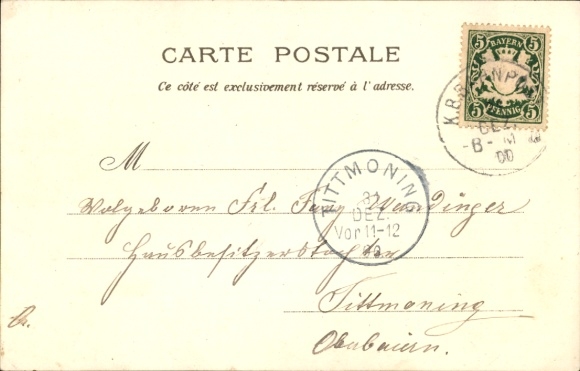 CARTE POSTALE
Ce côté est exclusivement réservé à l'adresse.
5 BAYERN 5
PFENNIG
K.B.
DEZ.
-8-
00
M
TITTMONING
31
DEZ.
Vor 11-12
Wolgeboren Frl. Fany Wandinger
Hausbesitzerstochter
Tittmoning
Oberbaiern.